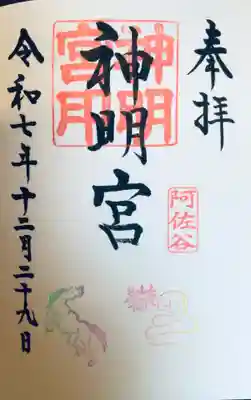 奉拝
阿佐谷
神明宮
神明宮印
令和七年十二月二十九日